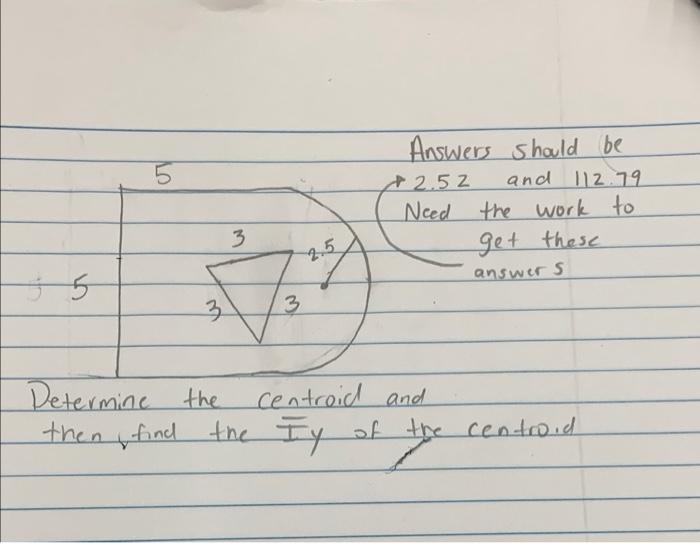 Answers should be
5
2.52 and 112.79
Need the work to
get these
answers
3
2.5
5
3
3
Determine the centroid and
then, find the Iy of the centroid